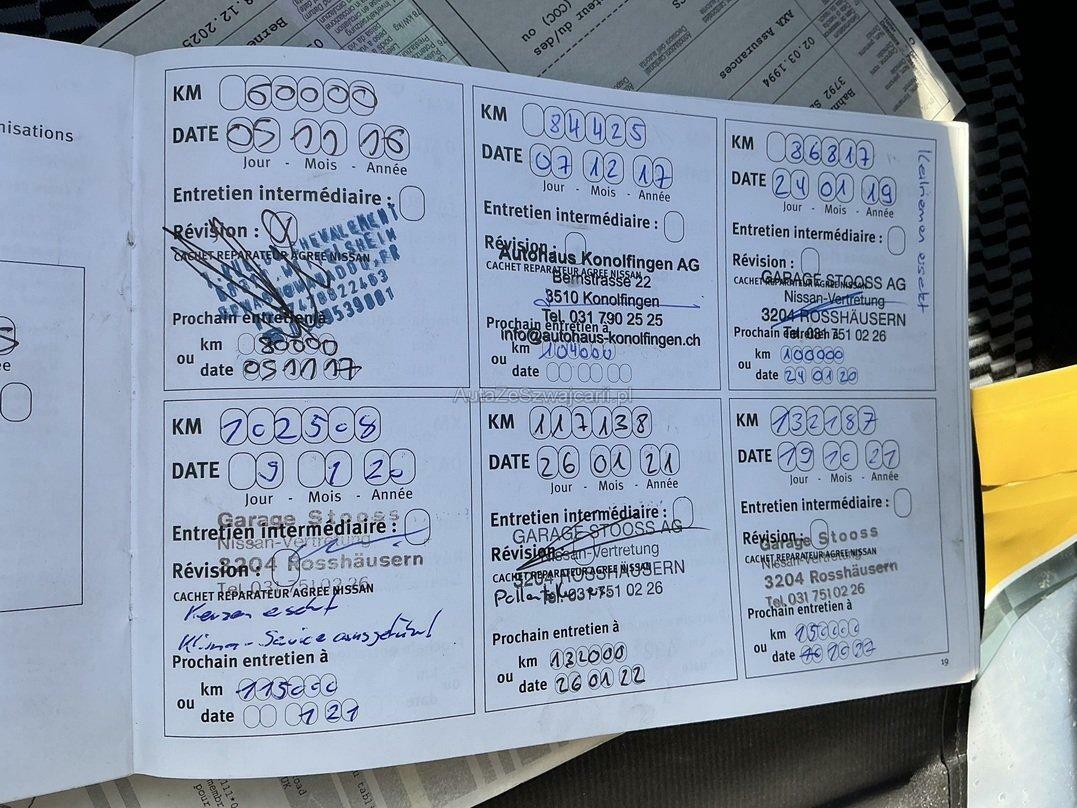 nisations
KM 60000
DATE 05 11 16
Jour - Mois - Année
Entretien intermédiaire :
Révision :
CACHET REPARATEUR AGREE NISSAN
Prochain entretien à
km 80000
ou
date 05 11 17
KM 84425
DATE 07 12 17
Jour - Mois - Année
Entretien intermédiaire :
Révision :
Autohaus Konolfingen AG
CACHET REPARATEUR AGREE NISSAN
Bernstrasse 22
3510 Konolfingen
Tel. 031 790 25 25
Prochain entretien à
info@autohaus-konolfingen.ch
km 104000
ou
date
KM 86817
DATE 24 01 19
Jour - Mois - Année
Entretien intermédiaire :
Révision :
GARAGE STOOSS AG
CACHET REPARATEUR AGREE NISSAN
Nissan-Vertretung
3204 ROSSHÄUSERN
Prochain entretien à
Tel. 031 751 02 26
km 100000
ou
date 24 01 20
Keilriemen ersetzt
AutaZeSzwajcarii.pl
KM 102508
DATE 9 1 20
Jour - Mois - Année
Garage Stooss
Entretien intermédiaire :
Nissan-Vertretung
3204 Rosshäusern
Révision :
Tel. 031 751 02 26
CACHET REPARATEUR AGREE NISSAN
Kerzen ersetzt
Klima-Service ausgeführt
Prochain entretien à
km 115000
ou
date 1 21
KM 117138
DATE 26 01 21
Jour - Mois - Année
Entretien intermédiaire :
GARAGE STOOSS AG
Révision :
Nissan-Vertretung
CACHET REPARATEUR AGREE NISSAN
3204 ROSSHÄUSERN
Tel. 031 751 02 26
Prochain entretien à
km 132000
ou
date 26 01 22
KM 132187
DATE 19 10 21
Jour - Mois - Année
Entretien intermédiaire :
Révision :
Garage Stooss
CACHET REPARATEUR AGREE NISSAN
Nissan-Vertretung
3204 Rosshäusern
Tel. 031 751 02 26
Prochain entretien à
km 150000
ou
date
19
AXA Assurances
02.03.1994